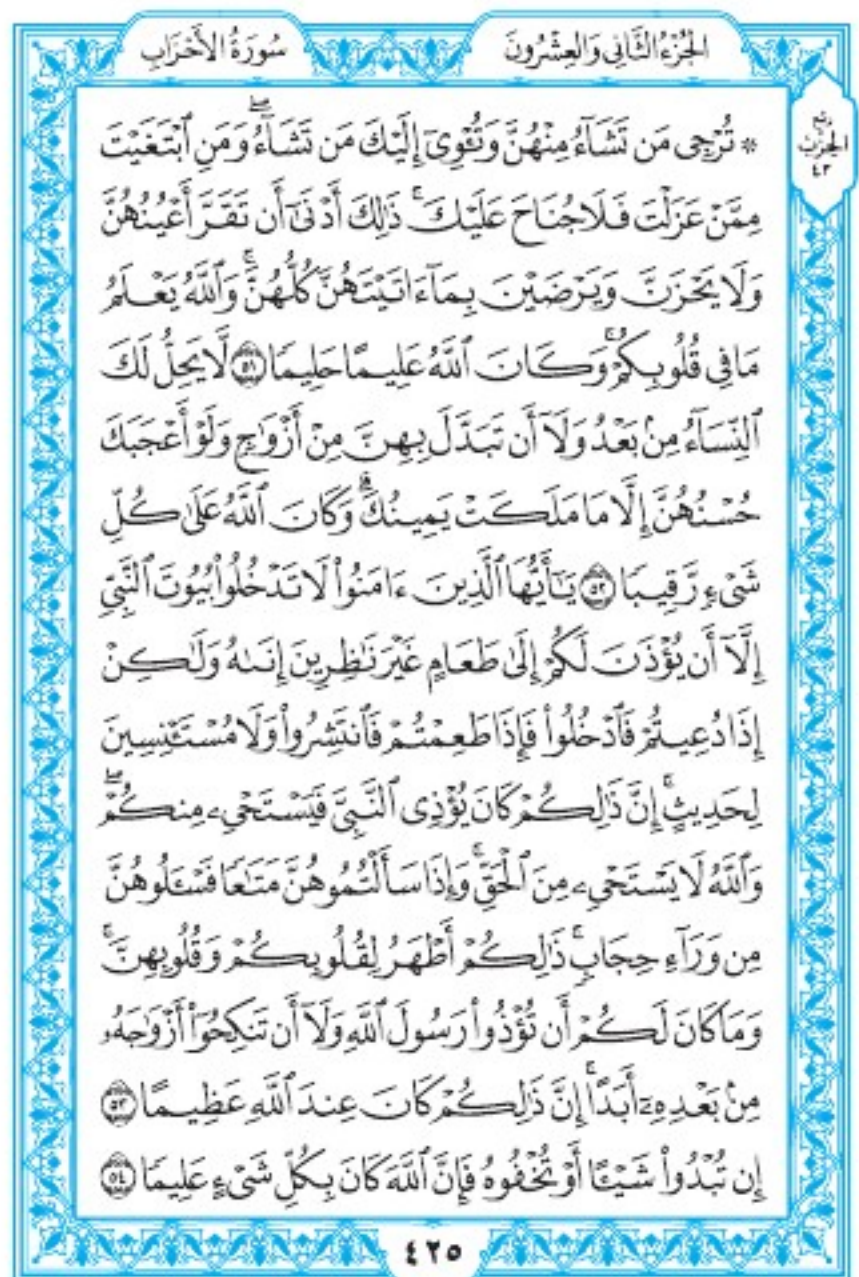 الجُزْءُ الثَّانِي وَالعِشْرُونَ
سُورَةُ الأَحْزَابِ
رُبْع
الحِزْبِ
٤٣
۞ تُرْجِي مَن تَشَآءُ مِنْهُنَّ وَتُـْٔوِيٓ إِلَيْكَ مَن تَشَآءُۖ وَمَنِ ٱبْتَغَيْتَ
مِمَّنْ عَزَلْتَ فَلَا جُنَاحَ عَلَيْكَۚ ذَٰلِكَ أَدْنَىٰٓ أَن تَقَرَّ أَعْيُنُهُنَّ
وَلَا يَحْزَنَّ وَيَرْضَيْنَ بِمَآ ءَاتَيْتَهُنَّ كُلُّهُنَّۚ وَٱللَّهُ يَعْلَمُ
مَا فِي قُلُوبِكُمْۚ وَكَانَ ٱللَّهُ عَلِيمًا حَلِيمًا ٥١ لَّا يَحِلُّ لَكَ
ٱلنِّسَآءُ مِنۢ بَعْدُ وَلَآ أَن تَبَدَّلَ بِهِنَّ مِنْ أَزْوَٰجٍ وَلَوْ أَعْجَبَكَ
حُسْنُهُنَّ إِلَّا مَا مَلَكَتْ يَمِينُكَۗ وَكَانَ ٱللَّهُ عَلَىٰ كُلِّ
شَيْءٍ رَّقِيبًا ٥٢ يَٰٓأَيُّهَا ٱلَّذِينَ ءَامَنُوا۟ لَا تَدْخُلُوا۟ بُيُوتَ ٱلنَّبِيِّ
إِلَّآ أَن يُؤْذَنَ لَكُمْ إِلَىٰ طَعَامٍ غَيْرَ نَٰظِرِينَ إِنَىٰهُ وَلَٰكِنْ
إِذَا دُعِيتُمْ فَٱدْخُلُوا۟ فَإِذَا طَعِمْتُمْ فَٱنتَشِرُوا۟ وَلَا مُسْتَـْٔنِسِينَ
لِحَدِيثٍۚ إِنَّ ذَٰلِكُمْ كَانَ يُؤْذِي ٱلنَّبِيَّ فَيَسْتَحْيِۦ مِنكُمْۖ
وَٱللَّهُ لَا يَسْتَحْيِۦ مِنَ ٱلْحَقِّۚ وَإِذَا سَأَلْتُمُوهُنَّ مَتَٰعًا فَسْـَٔلُوهُنَّ
مِن وَرَآءِ حِجَابٍۚ ذَٰلِكُمْ أَطْهَرُ لِقُلُوبِكُمْ وَقُلُوبِهِنَّۚ
وَمَا كَانَ لَكُمْ أَن تُؤْذُوا۟ رَسُولَ ٱللَّهِ وَلَآ أَن تَنكِحُوٓا۟ أَزْوَٰجَهُۥ
مِنۢ بَعْدِهِۦٓ أَبَدًاۚ إِنَّ ذَٰلِكُمْ كَانَ عِندَ ٱللَّهِ عَظِيمًا ٥٣
إِن تُبْدُوا۟ شَيْـًٔا أَوْ تُخْفُوهُ فَإِنَّ ٱللَّهَ كَانَ بِكُلِّ شَيْءٍ عَلِيمًا ٥٤
٤٢٥